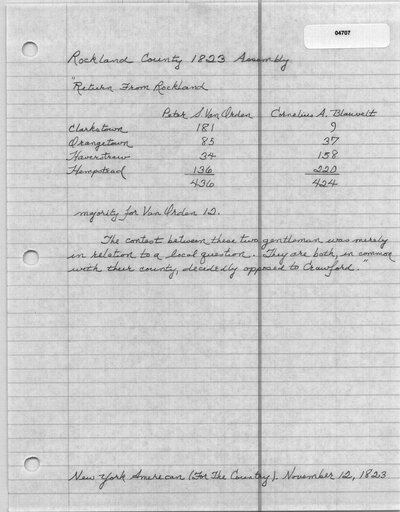 04707
Rockland County 1823 Assembly
"Return From Rockland
Peter S. Van Orden Cornelius A. Blauvelt
Clarkstown 181 9
Orangetown 85 37
Haverstraw 34 158
Hempstead 136 220
436 424
majority for Van Orden 12.
The contest between these two gentleman was merely
in relation to a local question. They are both, in common
with their county, decidedly opposed to Crawford."
New York American (For The Country). November 12, 1823